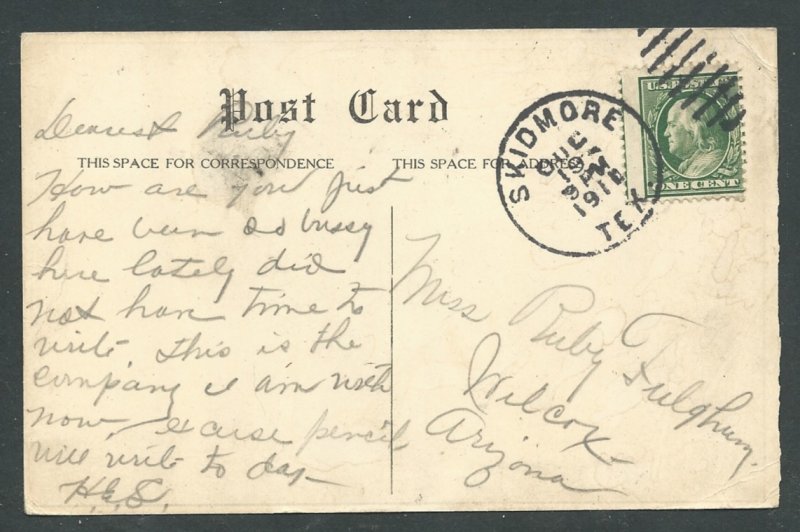 Post Card
Dearest Ruby
THIS SPACE FOR CORRESPONDENCE
How are you just
have been so bussy
here lately did
not have time to
write. This is the
company I am with
now, excuse pencil
will write to day
H.E.S.
THIS SPACE FOR ADDRESS
SKIDMORE
1912
TEX.
U.S. POSTAGE
ONE CENT
Miss Ruby Fulghum.
Wilcox
Arizona